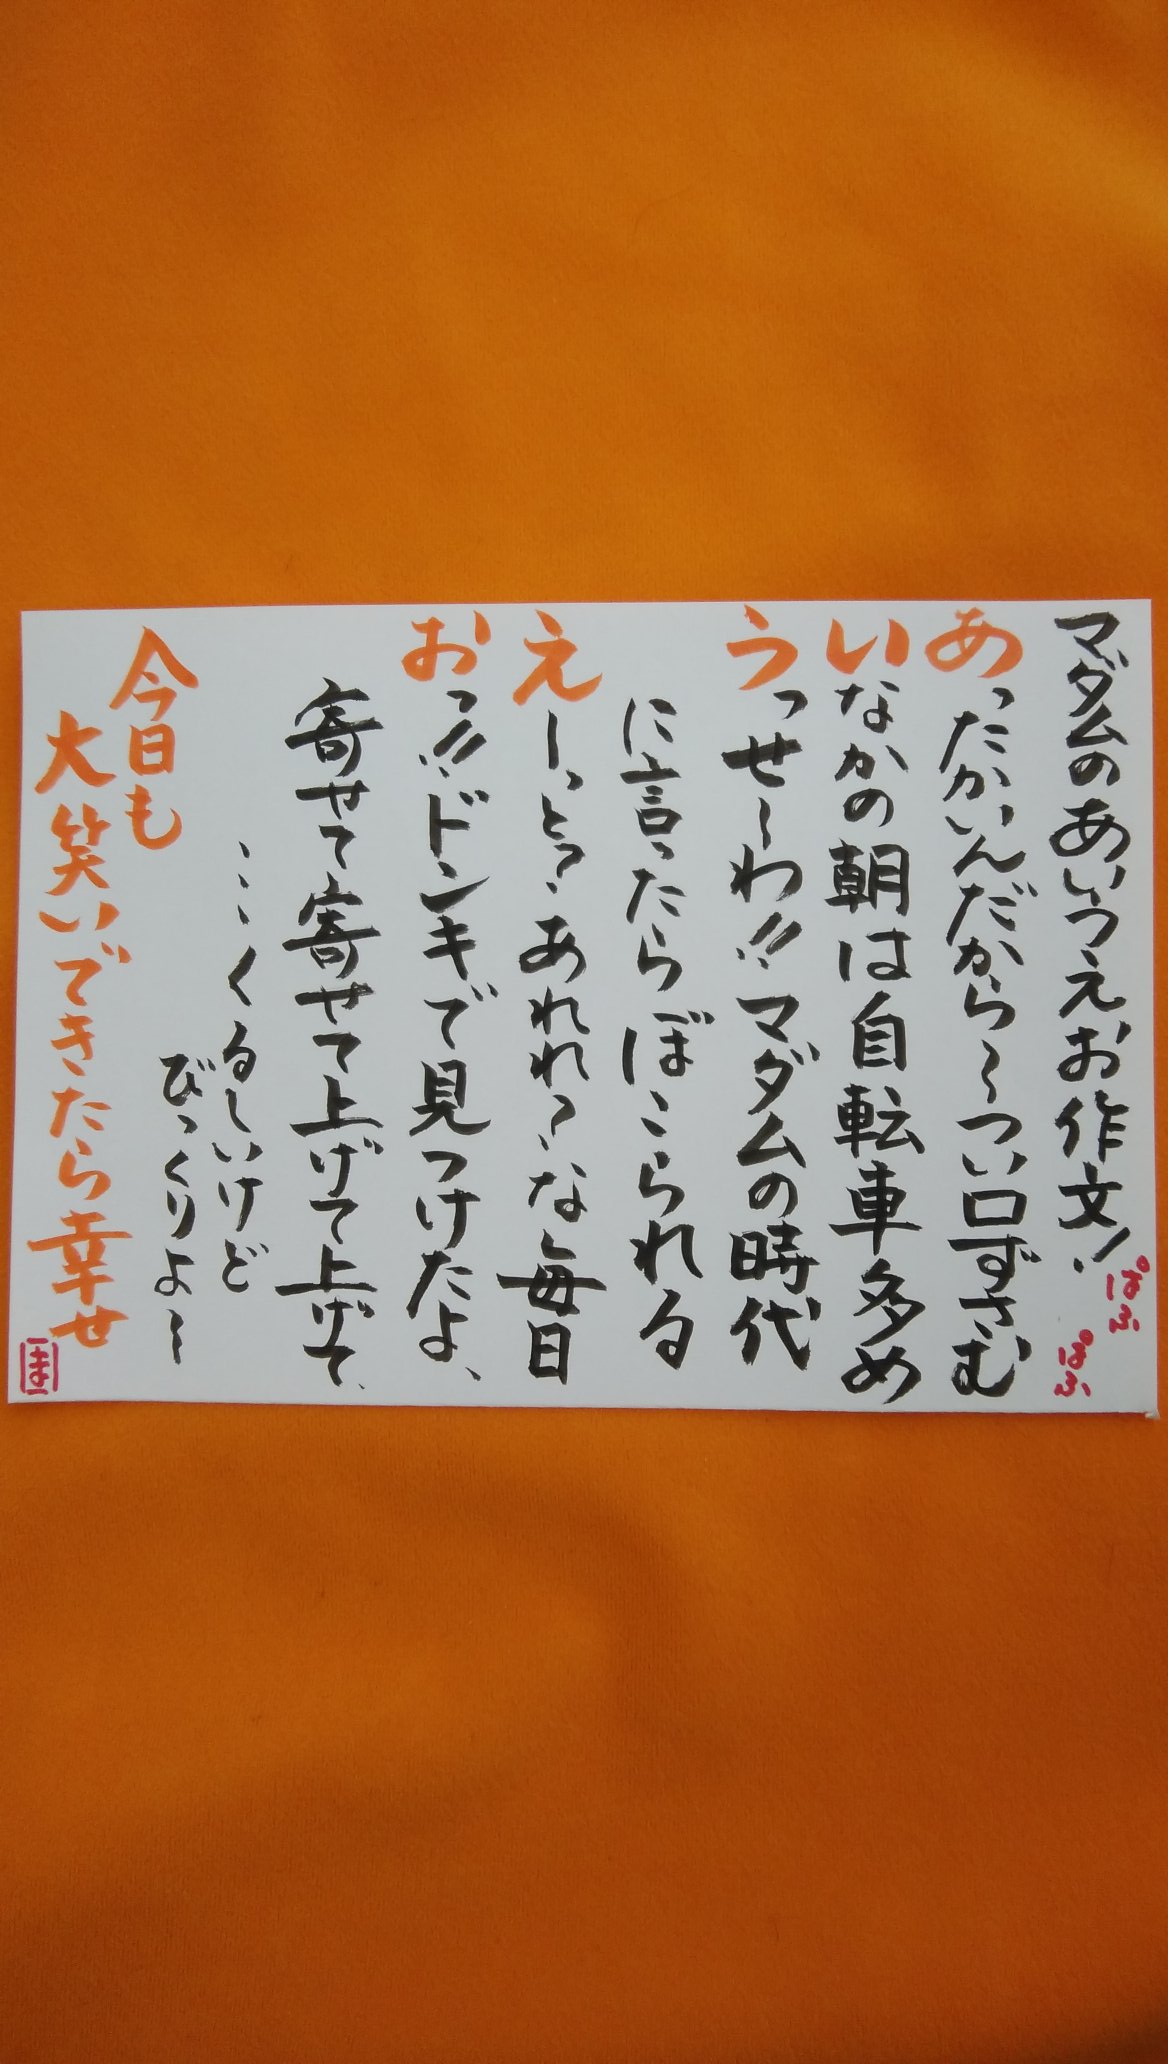 マダムのあいうえお作文!
ぱふ
ぱふ
あったかいんだから〜つい口ずさむ
いなかの朝は自転車多め
うっせ〜わ!!マダムの時代
に言ったらぼこられる
えーっと?あれれ?な毎日
おっ!!ドンキで見つけたよ、
寄せて寄せて上げて上げて、
…くるしいけど
びっくりよ〜
今日も
大笑いできたら幸せ
ま